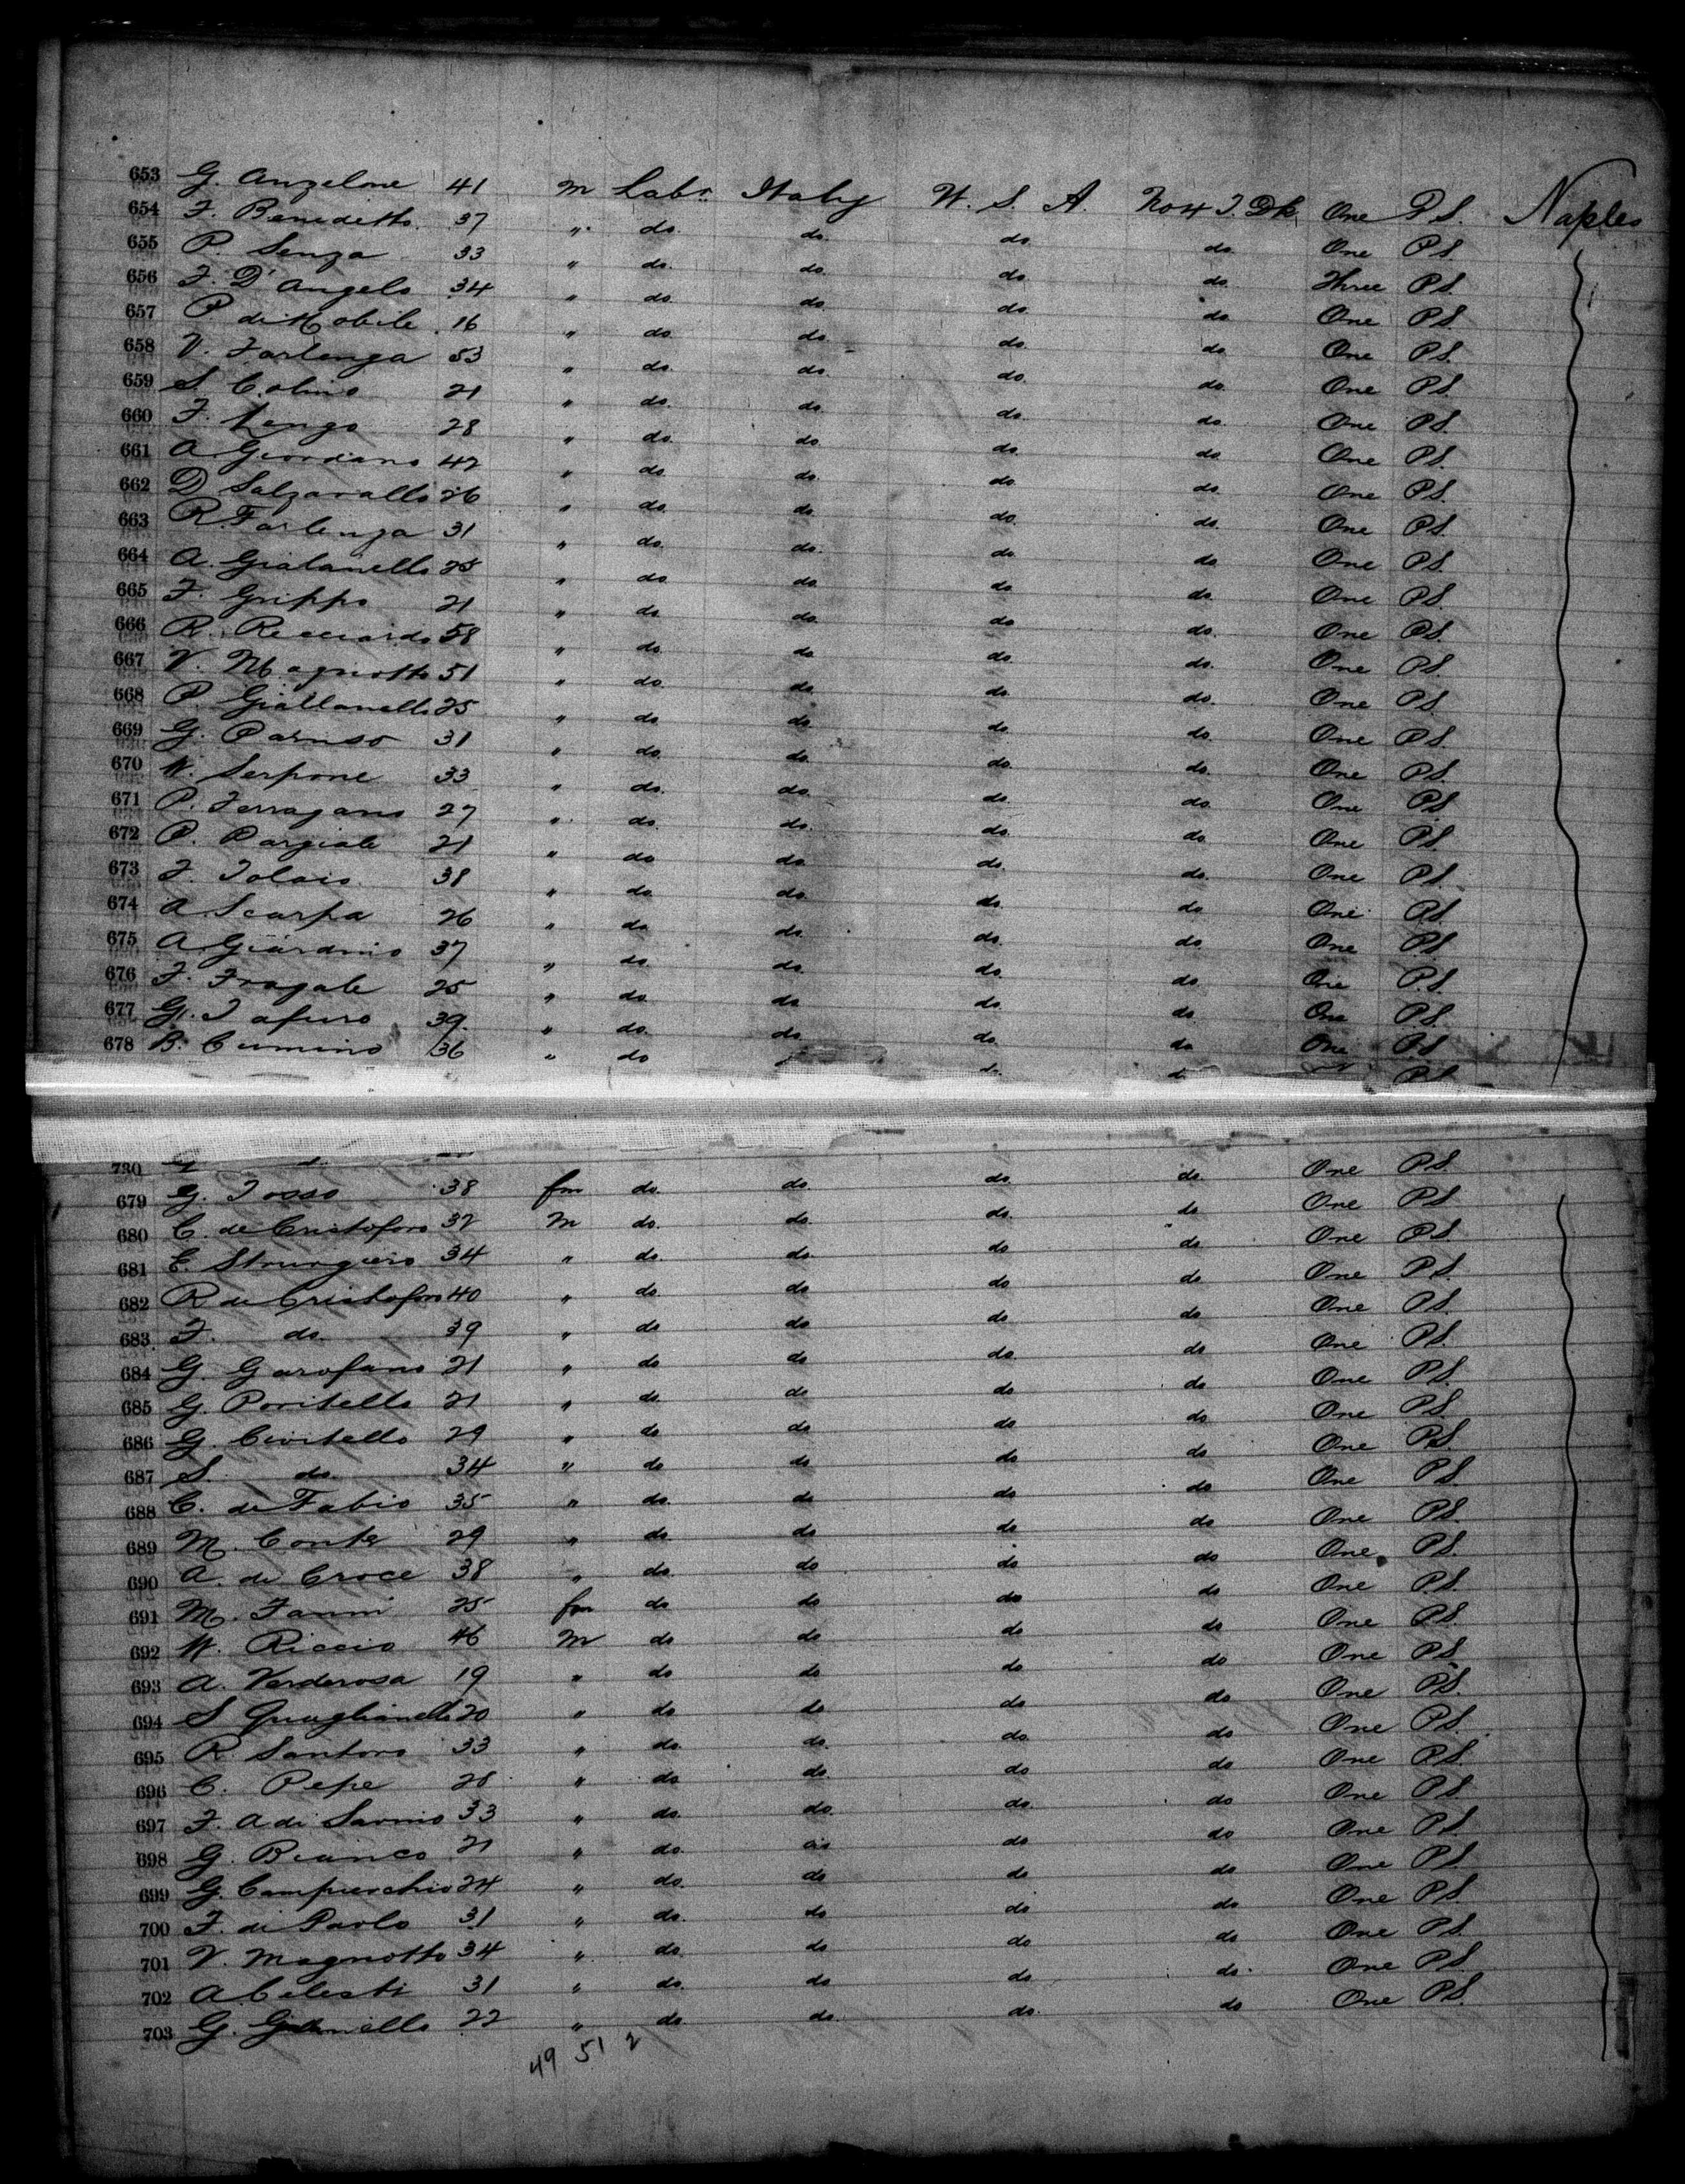 653 G. Angelone 41 M Labr. Italy U. S. A. No 4 I. Dk One P.S. Naples
654 F. Beneditto 37 " do. do. do. do. One P.S.
655 P. Senza 33 " do. do. do. do. Three P.S.
656 F. D'Angelo 34 " do. do. do. do. One P.S.
657 P di Nobile 16 " do. do. do. do. One P.S.
658 V. Farlenga 53 " do. do. do. do. One P.S.
659 S. Colino 21 " do. do. do. do. One P.S.
660 F. 28 " do. do. do. do. One P.S.
661 A Giordano 42 " do. do. do. do. One P.S.
662 D Salzarallo 26 " do. do. do. do. One P.S.
663 R. Farlenga 31 " do. do. do. do. One P.S.
664 A. Gialanello 25 " do do. do do One P.S.
665 F. Grippo 21 " do. do. do do. One P.S.
666 R. Ricciardo 58 " do. do do do. One P.S.
667 V. Magnotto 51 " do. do do do. One P.S.
668 P. Giallanello 25 " do do. do. do. One P.S.
669 G. Paruso 31 " do. do. do. do. One P.S.
670 N. Serpone 33 " do. do. do. do. One P.S.
671 P. Ferragano 27 " do. do. do. do. One P.S.
672 P. Pargiale 21 " do do. do. do. One P.S.
673 F. Tolais 38 " do. do. do. do One P.S.
674 A. Scarpa 26 " do. do. do. do. One P.S.
675 A Giardnio 37 " do. do. do. do One P.S.
676 F. Fragale 25 " do. do do. do. One P.S.
677 G. Tafuro 39 " do. do. do. do One P.S.
678 B. Cumino 36 " do P.S.
730 One P.S.
679 G. Tosso 38 fm do. do. do. do. One P.S.
680 C. de Cristoforo 32 M do. do. do. do One P.S.
681 E. Strungiero 34 " do. do. do do One P.S.
682 R de Cristoforo 40 " do. do do do One P.S.
683 F. do. 39 " do do do do One P.S.
684 G. Garofano 21 " do do do. do One P.S.
685 G. Poritello 21 " do. do do do One P.S.
686 G. Civitello 29 " do do do do One P.S.
687 S. do. 34 " do do do do One P.S.
688 C. de Fabio 35 " do. do do do One P.S.
689 M. Conte 29 " do. do do do One P.S.
690 A. di Croce 38 " do. do do do One P.S.
691 M. Fanni 25 fm do do do do One P.S.
692 N. Riccio 46 M do do do do One P.S.
693 A. Verderosa 19 " do do do do One P.S.
694 S Quaglianello 20 " do do do do One P.S.
695 R. Santoro 33 " do do. do do One P.S.
696 C. Pepe 28 " do do. do do One P.S.
697 F. A di Sarnio 33 " do. do. do. do One P.S.
698 G. Bianco 21 " do. do do do One P.S.
699 G. Campierchio 24 " do. do do do One P.S.
700 F. di Paolo 31 " do. do do do One P.S.
701 V. Magnotto 34 " do. do do do One P.S.
702 A Celesti 31 " do. do do do One P.S.
703 G. 22 " do. do. do. do One P.S.
49 51 2